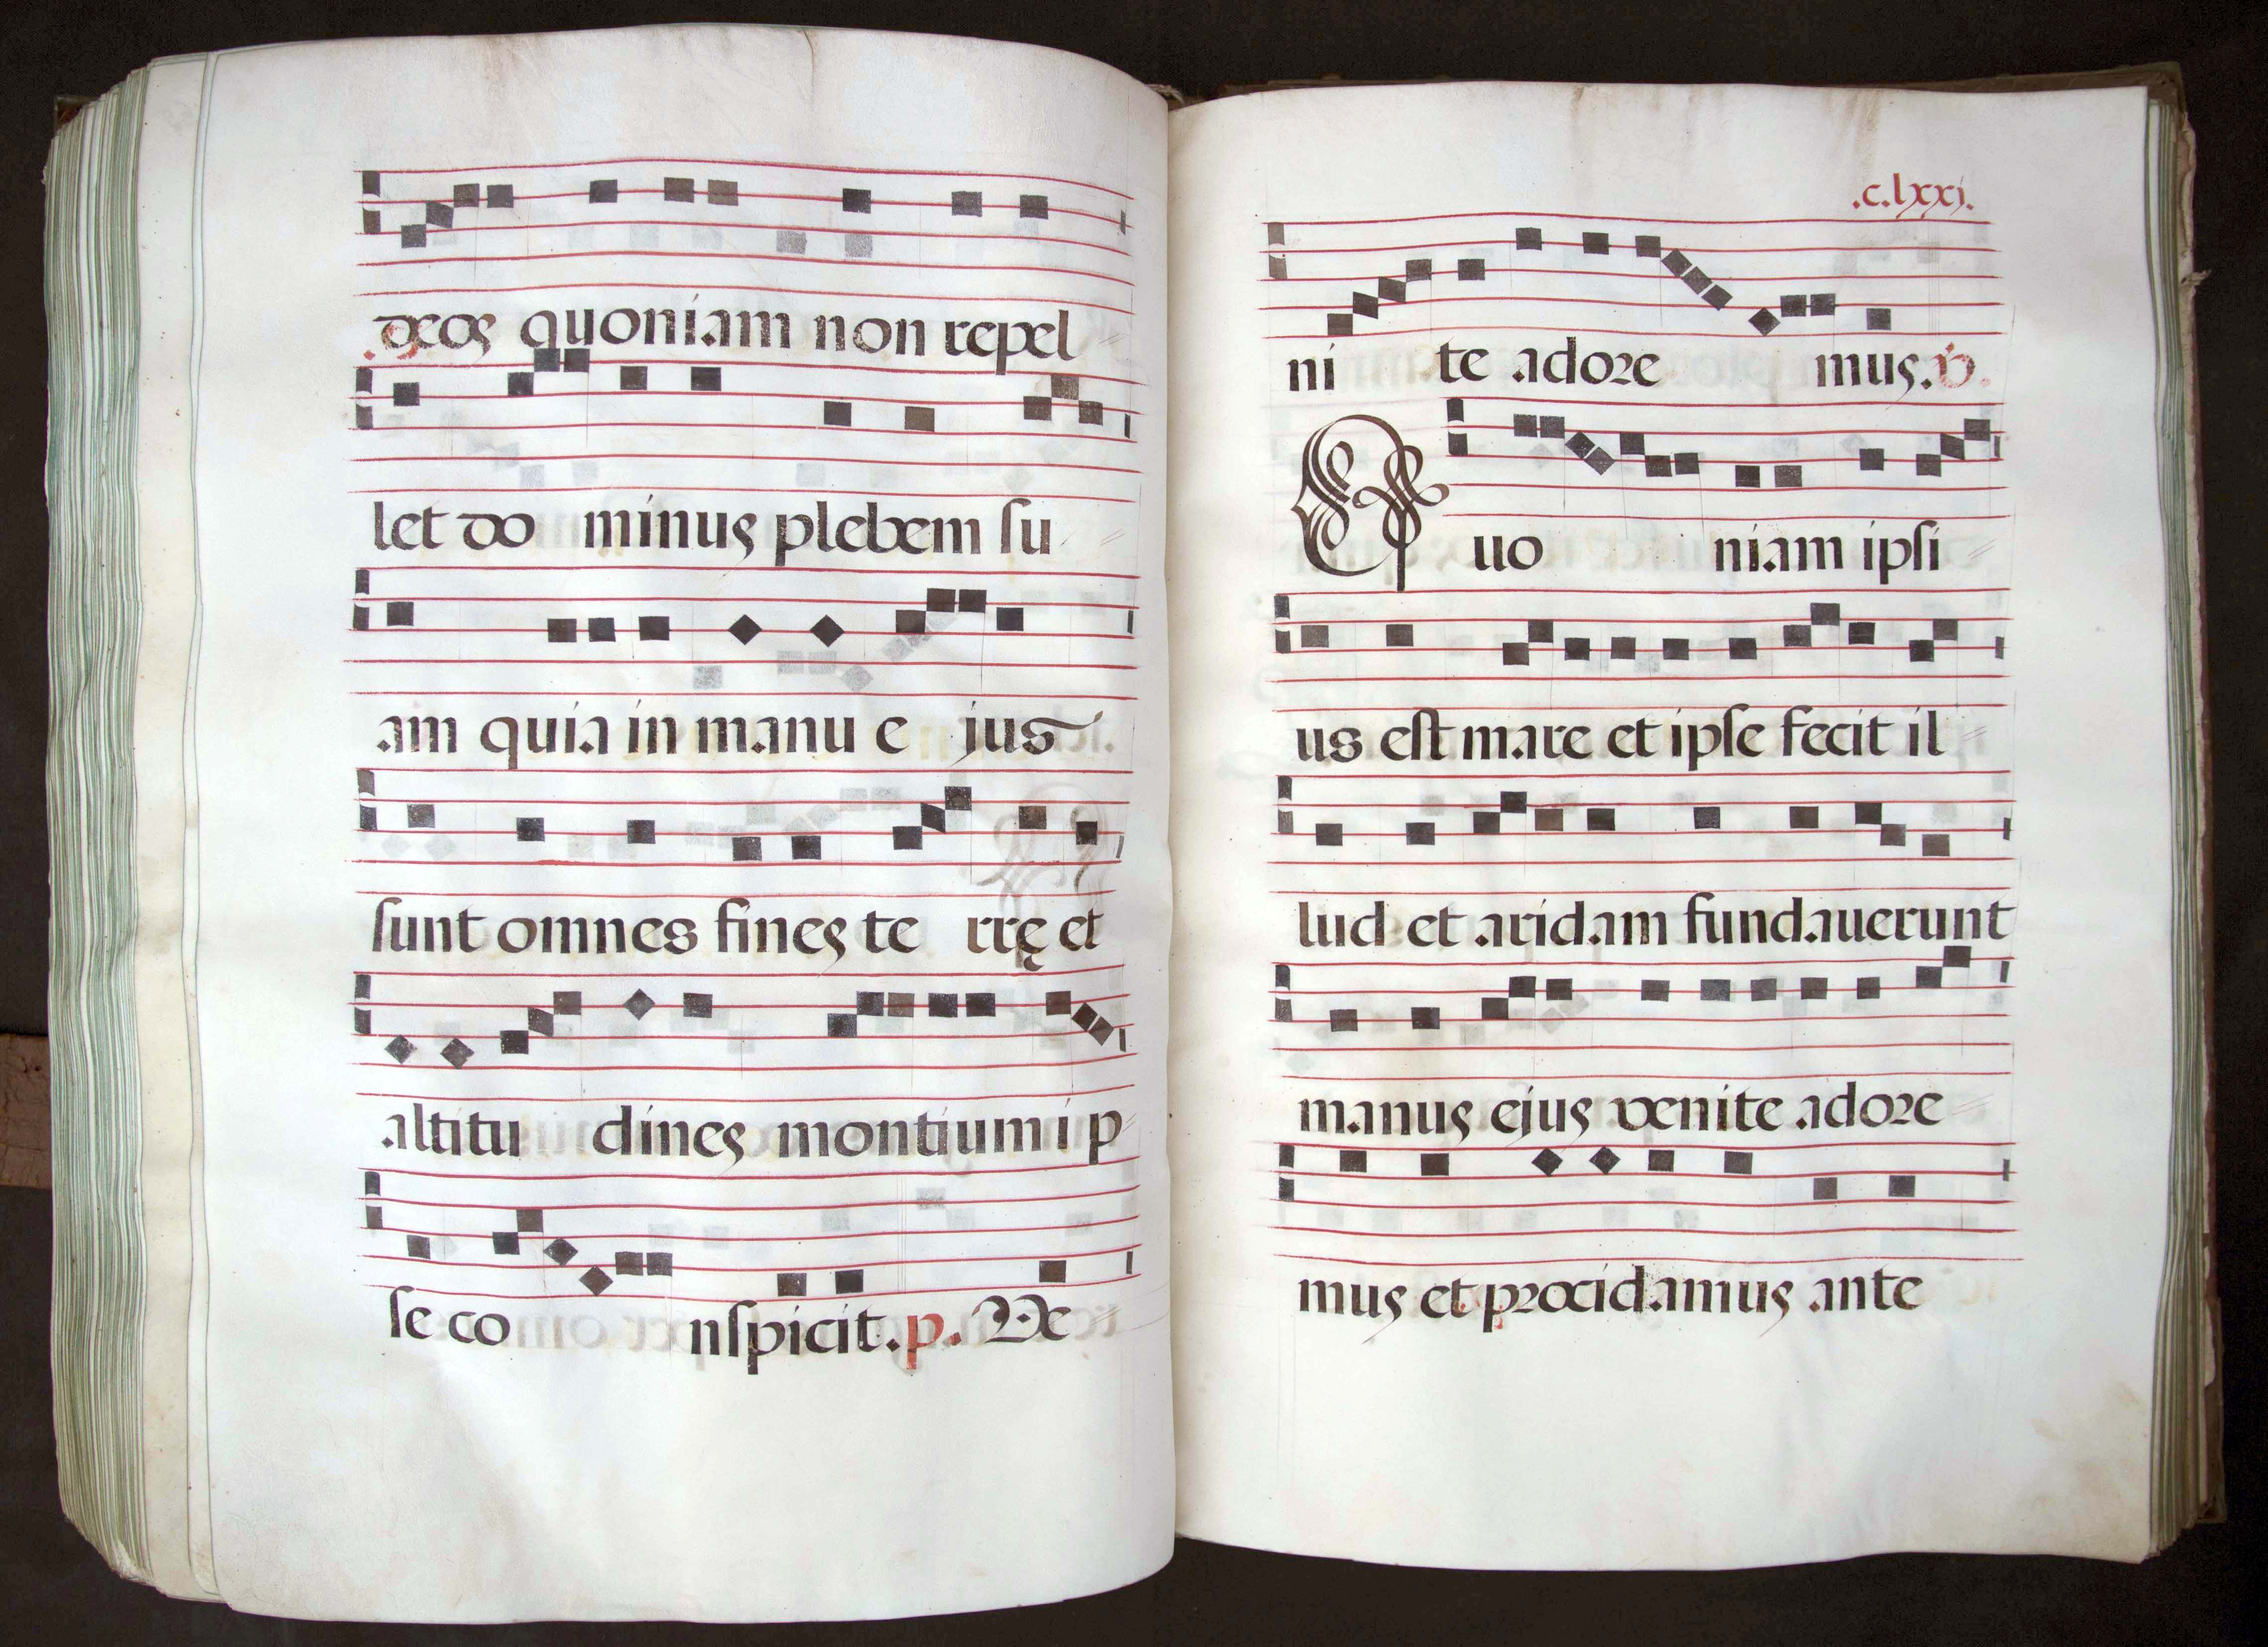 deos quoniam non repel
let do minus plebem su
am quia in manu e jus
sunt omnes fines te rrę et
altitu dines montium i p
se co nspicit. p. Ve
.c.lxxj.
ni te adore mus. V.
Quo niam ipsi
us est mare et ipse fecit il
lud et aridam fundauerunt
manus ejus venite adore
mus et procidamus ante